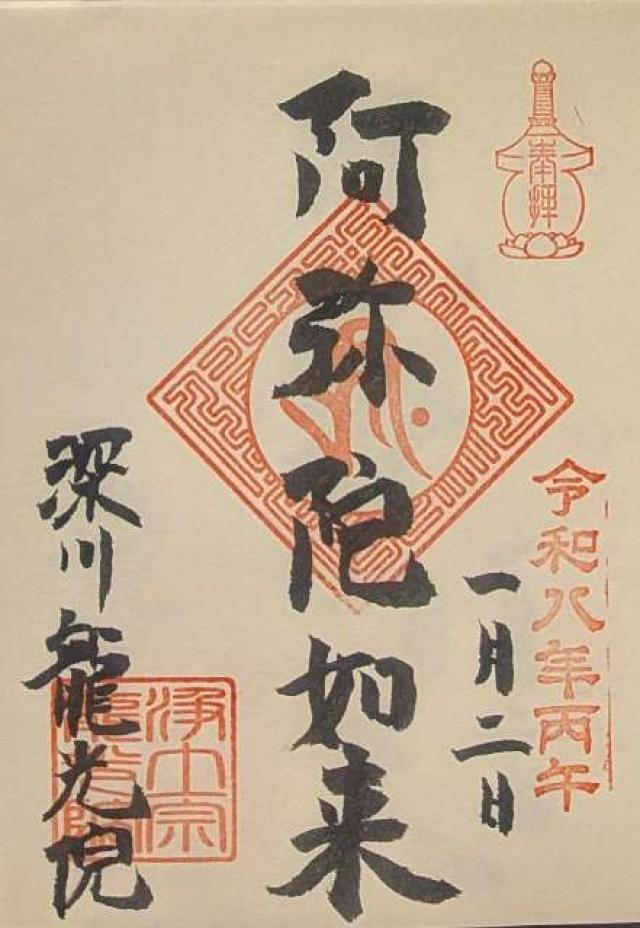 奉拝
令和八年丙午
一月二日
阿弥陀如来
深川龍光院
浄土宗